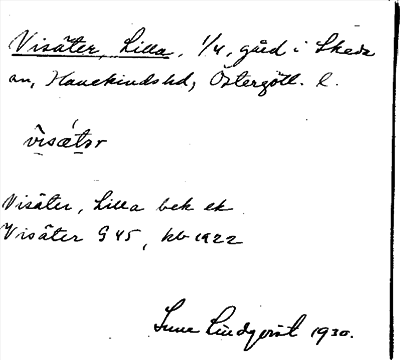 Visäter, Lilla, 1/4, gård i Skeda
sn, Hanekinds hd, Östergötl. l.
vìsǻtər
Visäter, Lilla bek ek
Visäter G 45, kb 1922
Sune Lindqvist 1930.